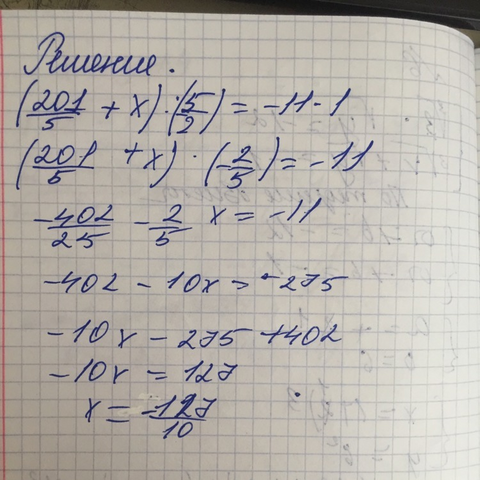 Решение.
(201/5 + x) : (5/2) = -11 · 1
(201/5 + x) · (-2/5) = -11
-402/25 - 2/5 x = -11
-402 - 10x = -275
-10x - 275 + 402
-10x = 127
x = -127/10